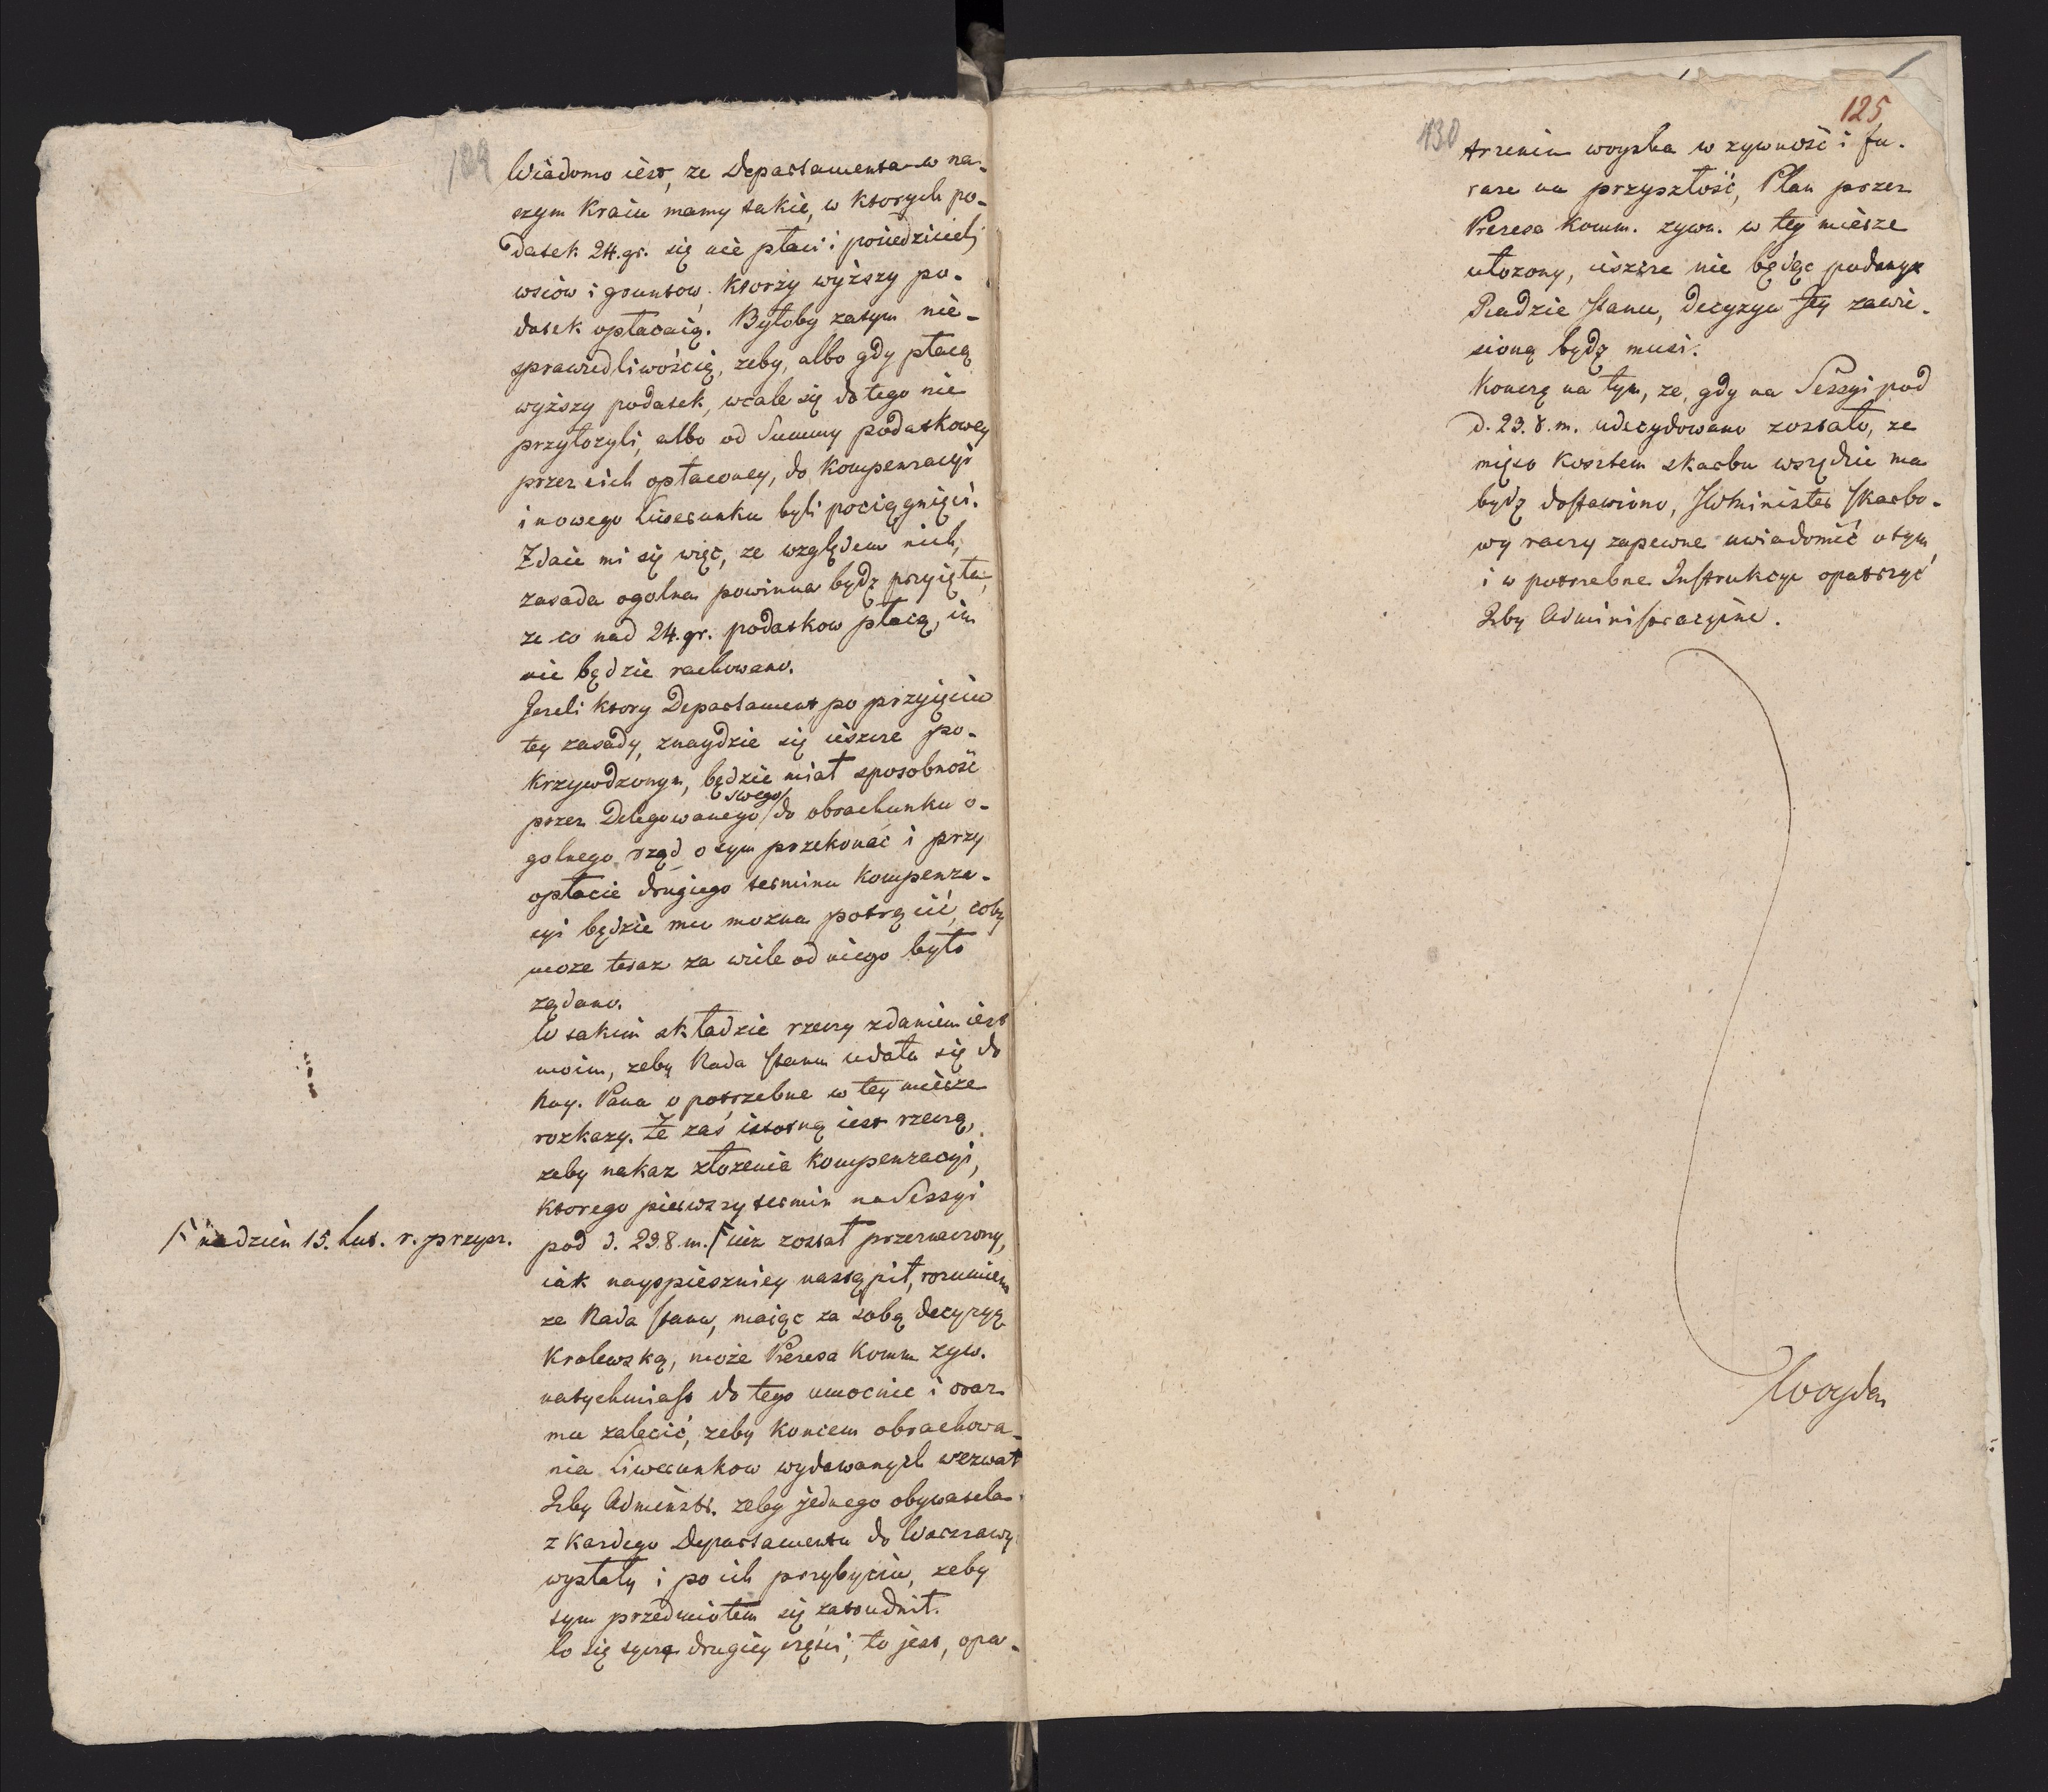 129
Wiadomo iest, ze Departamenta w na-
szym Kraiu mamy takie, w ktorych po-
datek 24. gr. się nie płaci i posiedzicieli
wsiów i gruntow, ktorzy wyższy po-
datek opłacaią. Byłoby zatym nie-
sprawiedliwością, zeby, albo gdy płacą
wyższy podatek, wcale się do tego nie
przyłozyli, albo od Summy podatkowey
przez nich opłaconey, do Kompensacyi
i nowego Liwerunku byli pociągnięci.
Zdaie mi się więc, ze względem nich,
zasada ogolna powinna bydz przyięta,
ze co nad 24. gr. podatkow płacą, im
nie będzie rachowano.
Jezeli ktory Departament po przyięciu
tey zasady, znaydzie się ieszcze po-
krzywdzonym, będzie miał sposobność
przez Delegowanego swego do obrachunku o-
golnego rząd o tym przekonać i przy
opłacie drugiego terminu Kompenza-
cyi będzie mu mozna potrącić, coby
moze teraz za wiele od niego było
ządano.
W takim składzie rzeczy zdaniem iest
moim, zeby Rada Stanu udała się do
Nay. Pana o potrzebne w tey mierze
rozkazy. Ze zaś istotną iest rzeczą,
zeby nakaz złozenia Kompenzacyi,
ktorego pierwszy termin na Sessyi
pod d. 23. 8. m. / iuz został przeznaczony,
/ na dzień 15. Lut. r. przysz.
iak nayspieszniey nastąpił, rozumiem
ze Rada Stanu, maiąc za sobą decyzyą
Krolewską, może Prezesa Komm. zyw.
natychmiast do tego umocnić i oraz
mu zalecić, zeby koncem obrachowa-
nia Liwerunkow wydawanych wezwał
Izby Administr. zeby jednego obywatela
z kazdego Departamentu do Warszawy
wysłały i po ich przybyciu, zeby
tym przedmiotem się zatrudnił.
Co się tycze drugiey części, to jest, opa-
130
125
trzenia woyska w zywność i fu-
raże na przyszłość, Plan przez
Prezesa Komm. zywn. w tey mierze
ułozony, ieszcze nie będąc podanym
Radzie Stanu, Decyzya Jey zawie-
sioną bydz musi.
Koncze na tym, ze, gdy na Sessyi pod
d. 23. 8. m. udecydowano zostało, ze
mięso kosztem skarbu wszędzie ma
bydz dostawiono, JWMinister Skarbo-
wy raczy zapewne uwiadomić o tym
i w potrzebne Instrukcye opatrzyć
Izby Administracyine.
Woyda